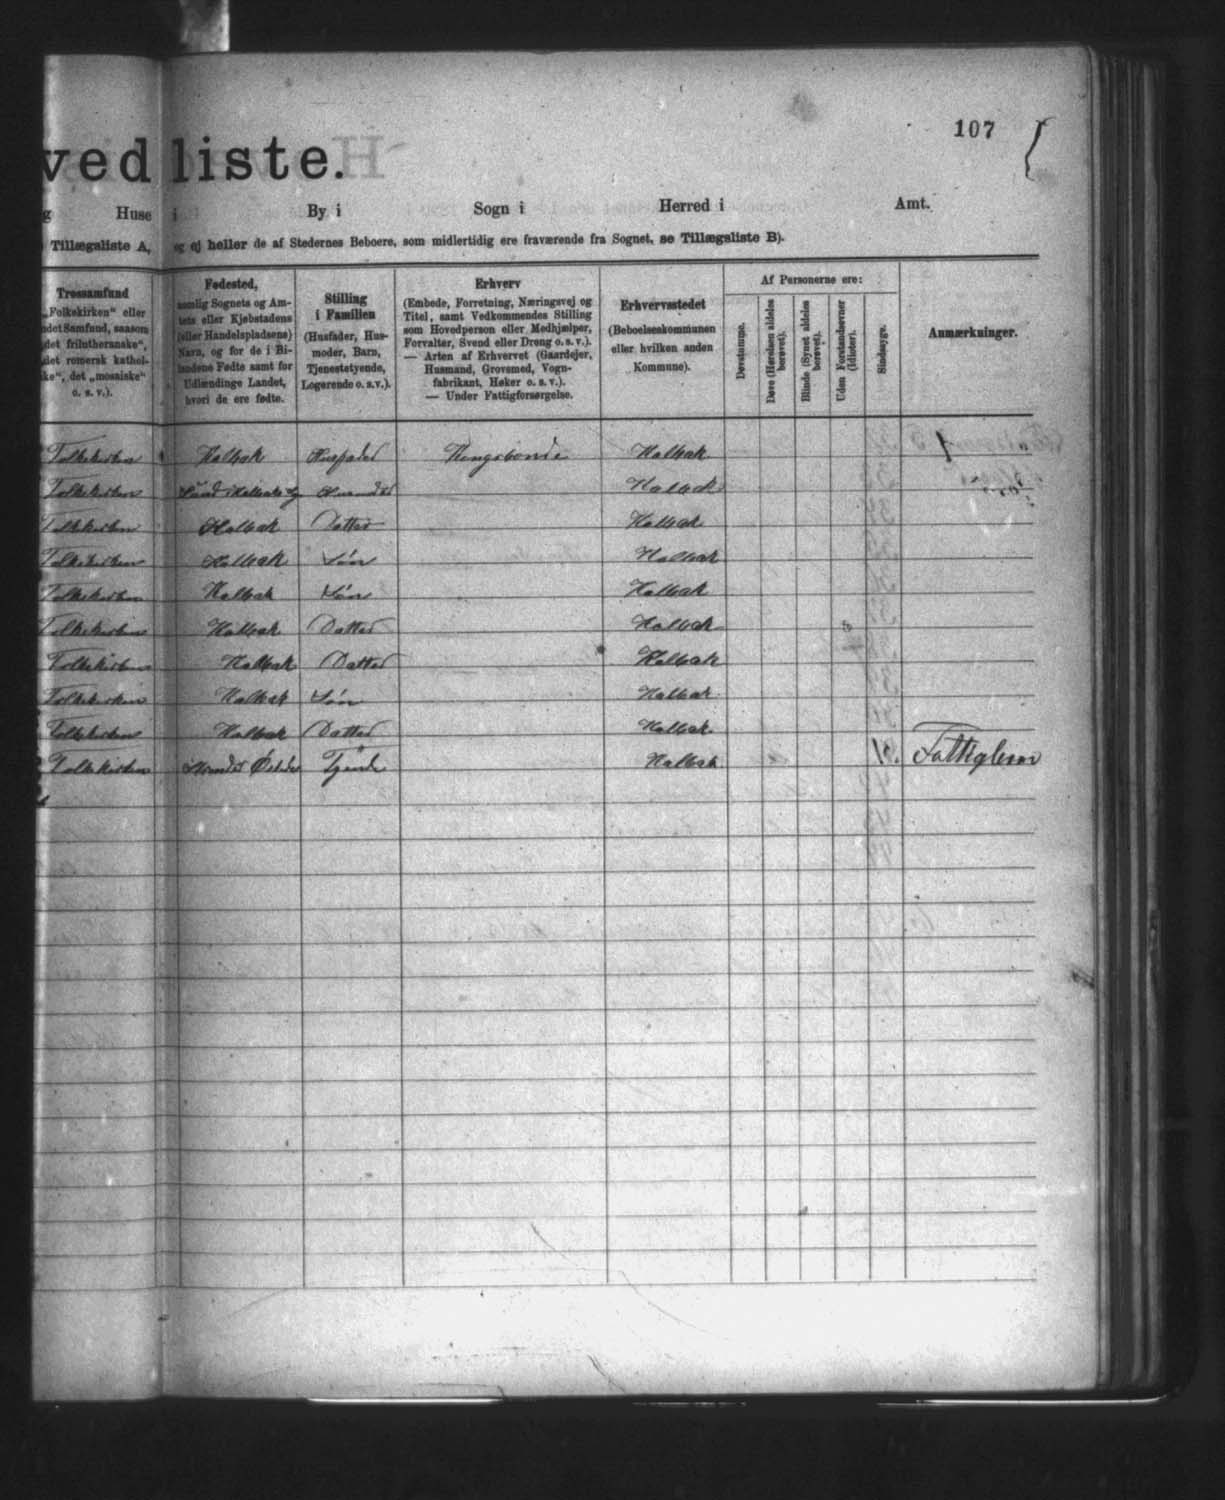 107
vedliste.
g Huse i By i Sogn i Herred i Amt.
Tillægsliste A, og ej heller de af Stedernes Beboere, som midlertidig ere fraværende fra Sognet, se Tillægsliste B).
Trossamfund
„Folkekirken“ eller
ndet Samfund, saasom
det frilutheranske“,
det romersk kathol-
ke“, det „mosaiske“
o. s. v.).
Fødested,
nemlig Sognets og Am-
tets eller Kjøbstadens
(eller Handelspladsens)
Navn, og for de i Bi-
landene Fødte samt for
Udlændinge Landet,
hvori de ere fødte.
Stilling
i Familien
(Husfader, Hus-
moder, Barn,
Tjenestetyende,
Logerende o. s. v.).
Erhverv
(Embede, Forretning, Næringsvej og
Titel, samt Vedkommendes Stilling
som Hovedperson eller Medhjælper,
Forvalter, Svend eller Dreng o. s. v.).
— Arten af Erhvervet (Gaardejer,
Husmand, Grovsmed, Vogn-
fabrikant, Høker o. s. v.).
— Under Fattigforsørgelse.
Erhvervsstedet
(Beboelseskommunen
eller hvilken anden
Kommune).
Af Personerne ere:
Døvstumme.
Døve (Hørelsen aldeles
berøvet).
Blinde (Synet aldeles
berøvet).
Uden Forstandsevner
(Idioter).
Sindssyge.
Anmærkninger.
Folkekirken Kalbak Husfader Kongsbonde Kalbak
Folkekirken Husmoder Kalbak
Folkekirken Kalbak Datter Kalbak
Folkekirken Kalbak Søn Kalbak
Folkekirken Kalbak Søn Kalbak
Folkekirken Kalbak Datter Kalbak
Folkekirken Kalbak Datter Kalbak
Folkekirken Kalbak Søn Kalbak
Folkekirken Kalbak Datter Kalbak
Folkekirken Kalbak Fattiglem